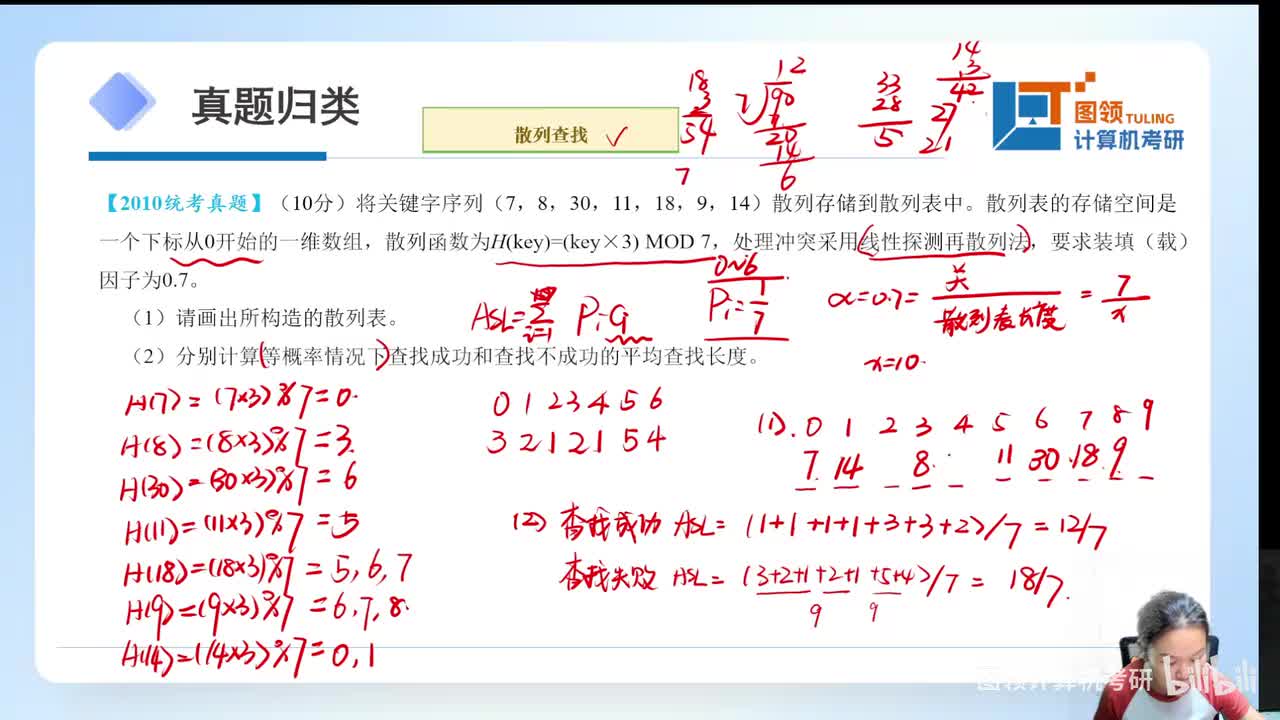 真题归类
散列查找 ✓
18
3
54
7
12
7√90
7
20
14
6
33
28
5
14
3
42
21
图领 TULING
计算机考研
【2010统考真题】（10分）将关键字序列（7，8，30，11，18，9，14）散列存储到散列表中。散列表的存储空间是
一个下标从0开始的一维数组，散列函数为H(key)=(key×3) MOD 7，处理冲突采用线性探测再散列法，要求装填（载）
因子为0.7。
0~6
（1）请画出所构造的散列表。
ASL=Σ i=1 PiCi
Pi=1/7
α=0.7=关/散列表长度=7/x
x=10.
（2）分别计算等概率情况下查找成功和查找不成功的平均查找长度。
H(7)=(7×3)%7=0.
H(8)=(8×3)%7=3.
H(30)=(30×3)%7=6
H(11)=(11×3)%7=5
H(18)=(18×3)%7=5,6,7
H(9)=(9×3)%7=6,7,8.
H(14)=(14×3)%7=0,1
0 1 2 3 4 5 6
3 2 1 2 1 5 4
(1). 0 1 2 3 4 5 6 7 8 9
7 14 8 11 30 18 9
(2) 查找成功 ASL=(1+1+1+1+3+3+2)/7=12/7
查找失败 ASL=(3+2+1+2+1+5+4)/7=18/7.
9 9
图领计算机考研 bilibili